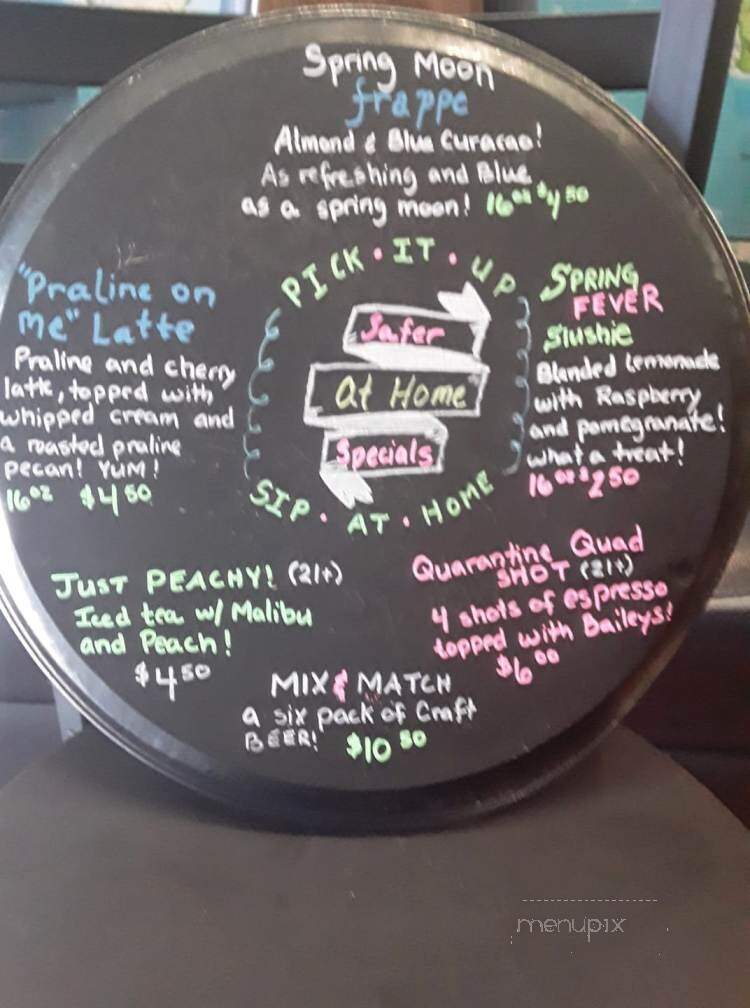 Spring Moon
frappe
Almond & Blue Curacao!
As refreshing and Blue
as a spring moon! 16oz $4 50
PICK • IT • UP
Safer
at Home
Specials
SIP • AT • HOME
"Praline on
me" Latte
Praline and cherry
latte, topped with
whipped cream and
a roasted praline
pecan! YUM!
16oz $4 50
SPRING
FEVER
Slushie
Blended lemonade
with Raspberry
and pomegranate!
what a treat!
16oz $2 50
JUST PEACHY! (21+)
Iced tea w/ Malibu
and Peach!
$4 50
Quarantine Quad
SHOT (21+)
4 shots of espresso
topped with Baileys!
$6 00
MIX & MATCH
a six pack of Craft
BEER! $10 50
menupix